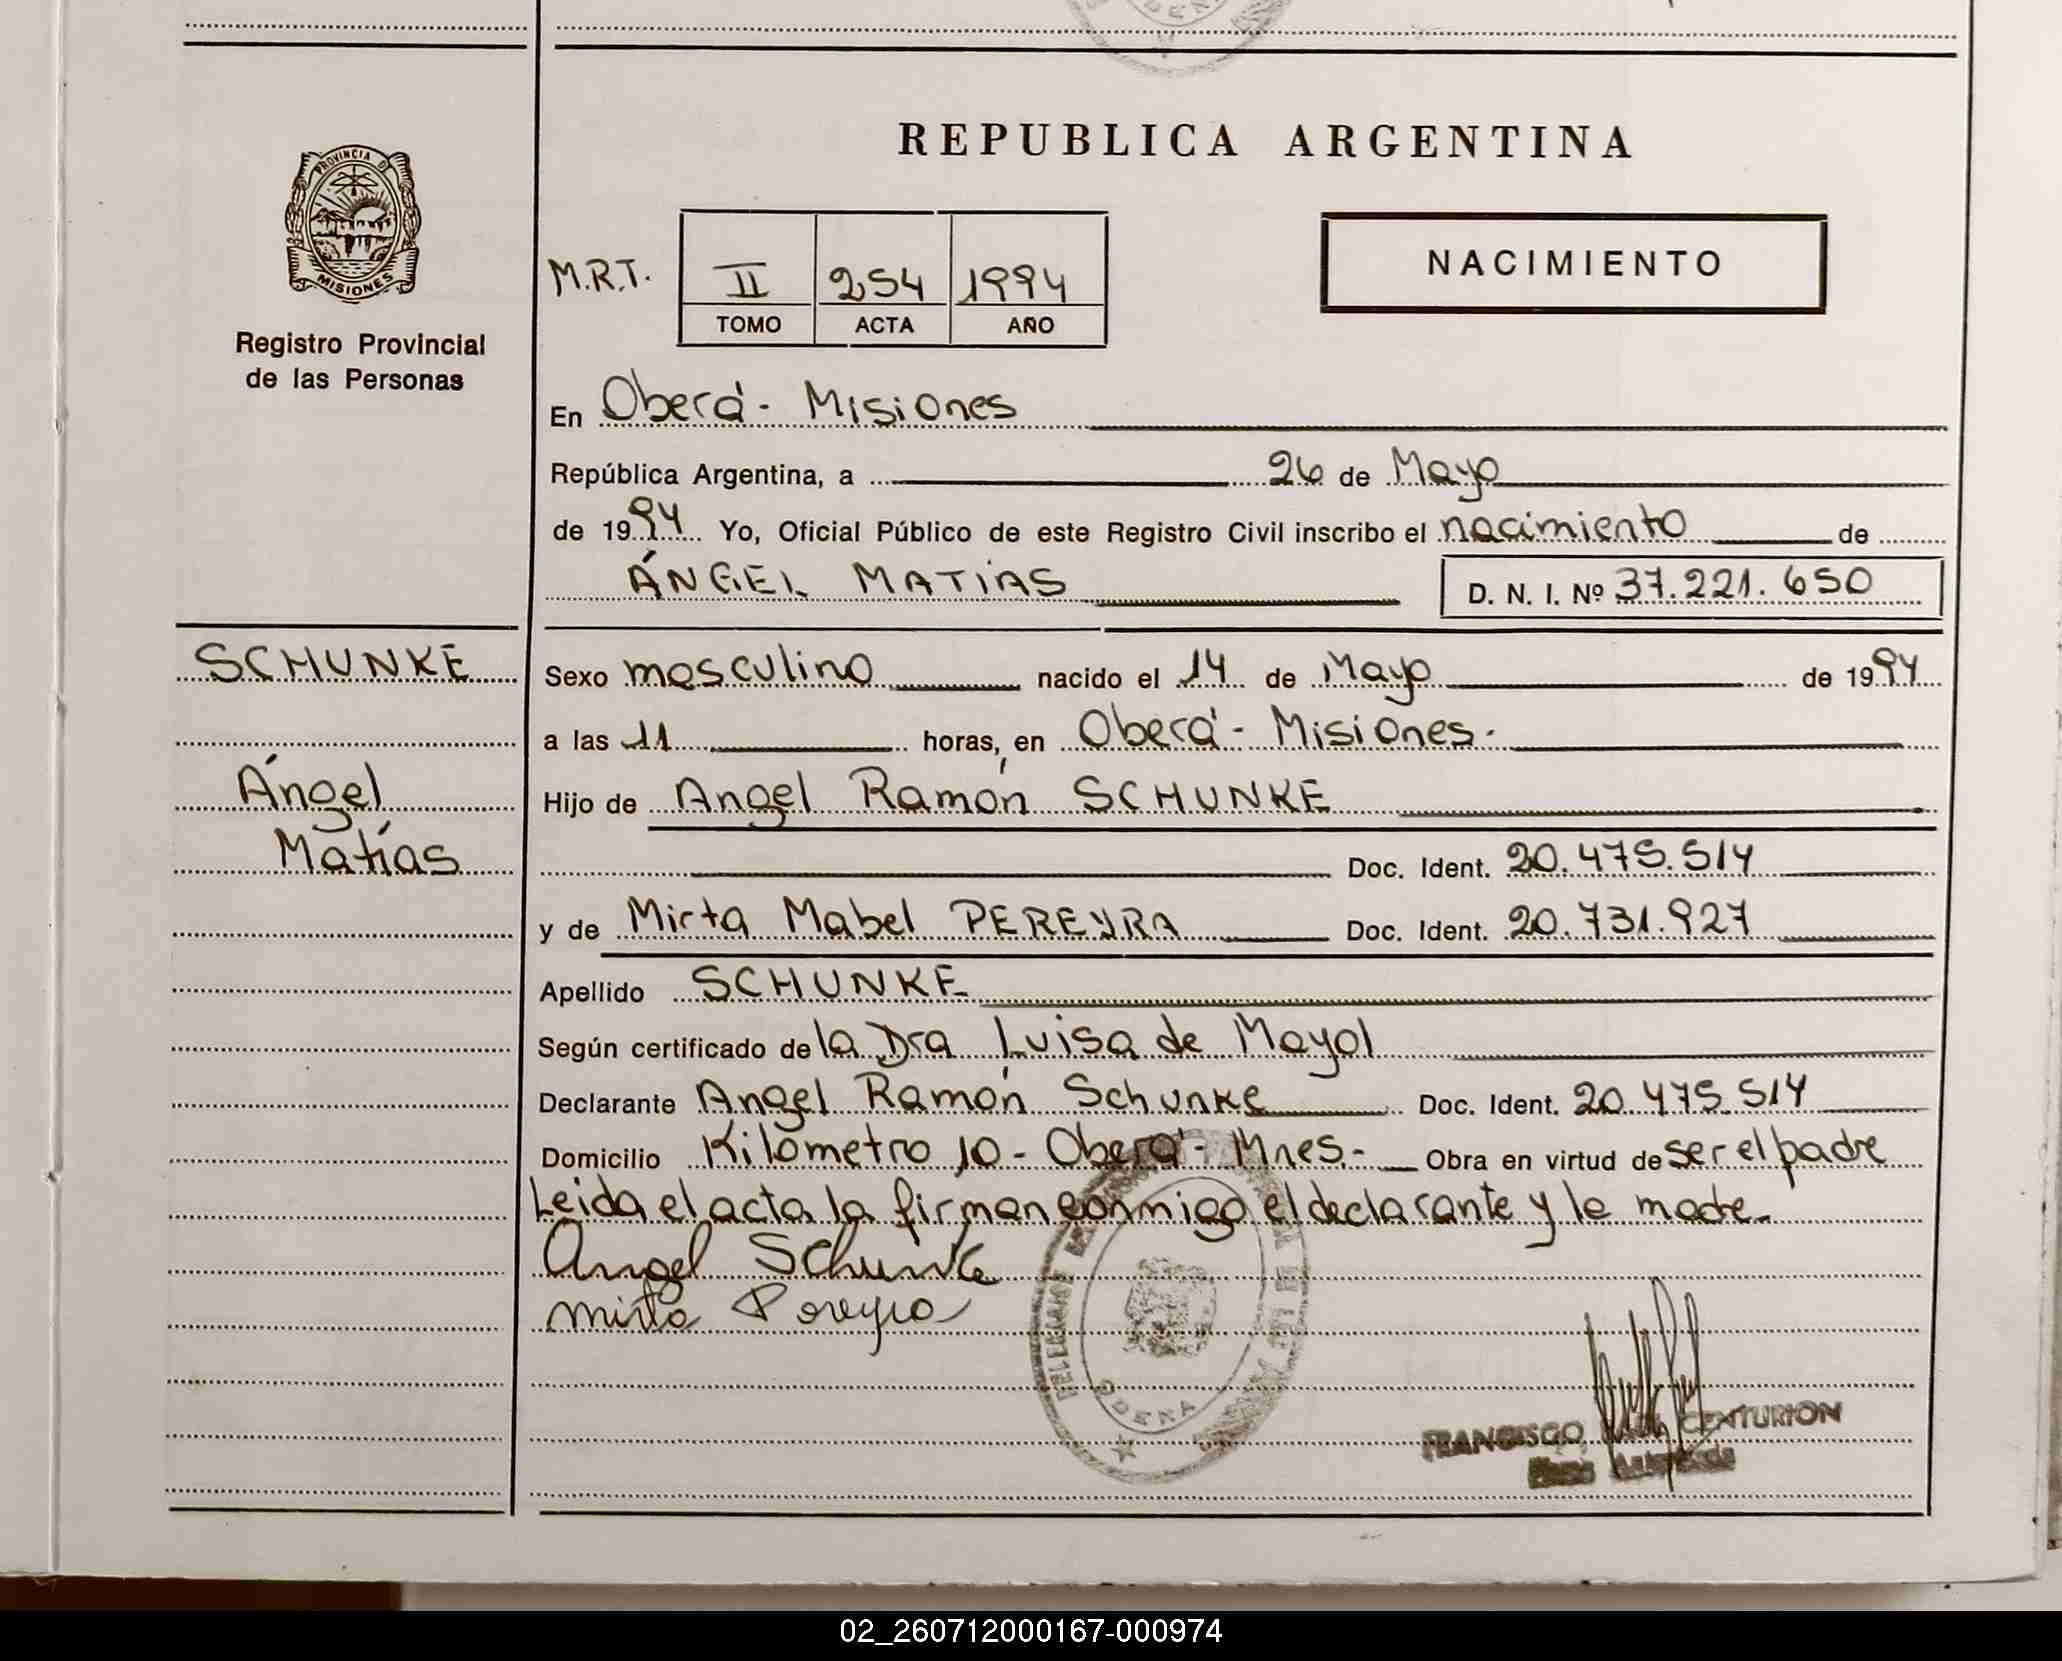 REPUBLICA ARGENTINA
PROVINCIA D
MISIONES
Registro Provincial
de las Personas
M.R.T. II 254 1994
TOMO ACTA AÑO
NACIMIENTO
En Oberá - Misiones
República Argentina, a 26 de Mayo
de 1994 Yo, Oficial Público de este Registro Civil inscribo el nacimiento de
ÁNGEL MATÍAS D. N. I. Nº 37.221.650
SCHUNKE
Ángel
Matías
Sexo masculino nacido el 14 de Mayo de 1994
a las 11 horas, en Oberá - Misiones.
Hijo de Angel Ramón SCHUNKE
Doc. Ident. 20.475.514
y de Mirta Mabel PEREYRA Doc. Ident. 20.731.927
Apellido SCHUNKE
Según certificado de la Dra Luisa de Mayol
Declarante Angel Ramón Schunke Doc. Ident. 20.475.514
Domicilio Kilometro 10 - Oberá - Mnes.- Obra en virtud de ser el padre
Leida el acta la firman conmigo el declarante y la madre.
Angel Schunke
Mirta Pereyra
FRANCISCO CENTURION
02_260712000167-000974